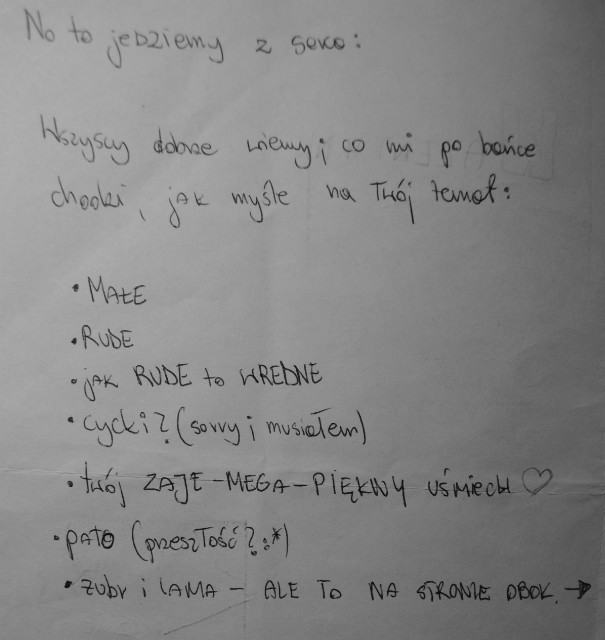 No to jedziemy z serco:
Wszyscy dobrze wiemy, co mi po bańce
chodzi, jak myśle na Twój temat:
• MAŁE
• RUDE
• jak RUDE to WREDNE
• cycki? (sorry, musiałem)
• twój ZAJE-MEGA-PIĘKNY uśmiech ♡
• pato (przeszłość? :*)
• żubr i LAMA - ALE TO NA STRONIE OBOK. →